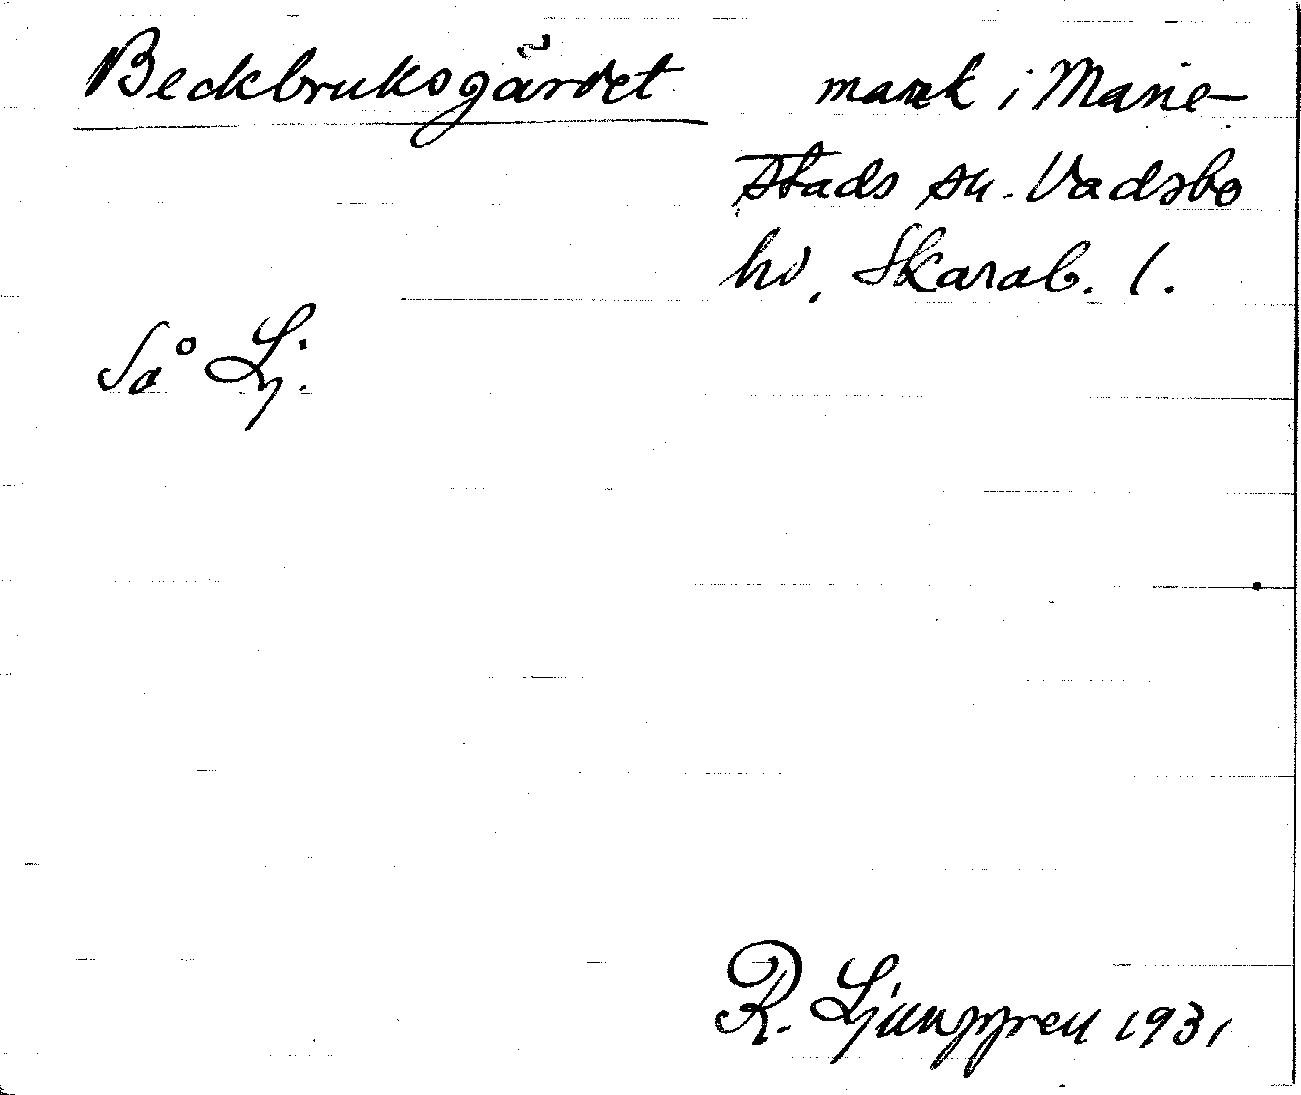 Beckbruksgärdet mark i Marie-
stads sn. Vadsbo
hd, Skarab. l.
Så Lj.
R. Ljunggren 1931